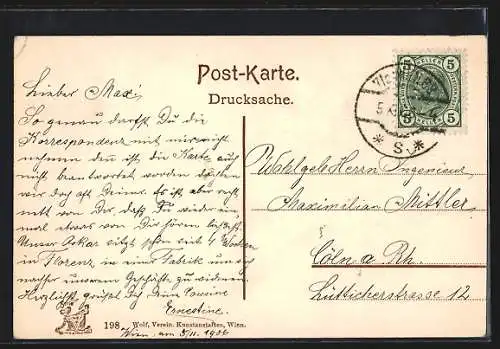 Post-Karte.
Drucksache.
5 HELLER 5
5 5
* S. *
Lieber Max!
So genau darfst Du die
Korrespondenz mit mir nicht
nehmen denn ich, die Karte auf
nicht beantwortet worden
war doch oft Deine. Es ist aber recht
nett von Dir, dass Du wieder ein-
mal etwas von Dir hören
Unser Oskar sitzt schon seit 4 Wochen
in Florenz in einer Fabrik und
unserem Geschäfte zu widmen.
Herzlichst grüsst Dich Deine Cousine
Ernestine.
Wohlgeb Herrn Ingenieur
Maximilian Mittler
Cöln a Rh.
Lütticherstrasse 12
198 Wolf, Verein. Kunstanstalten, Wien.
Wien, am 5/11. 1906